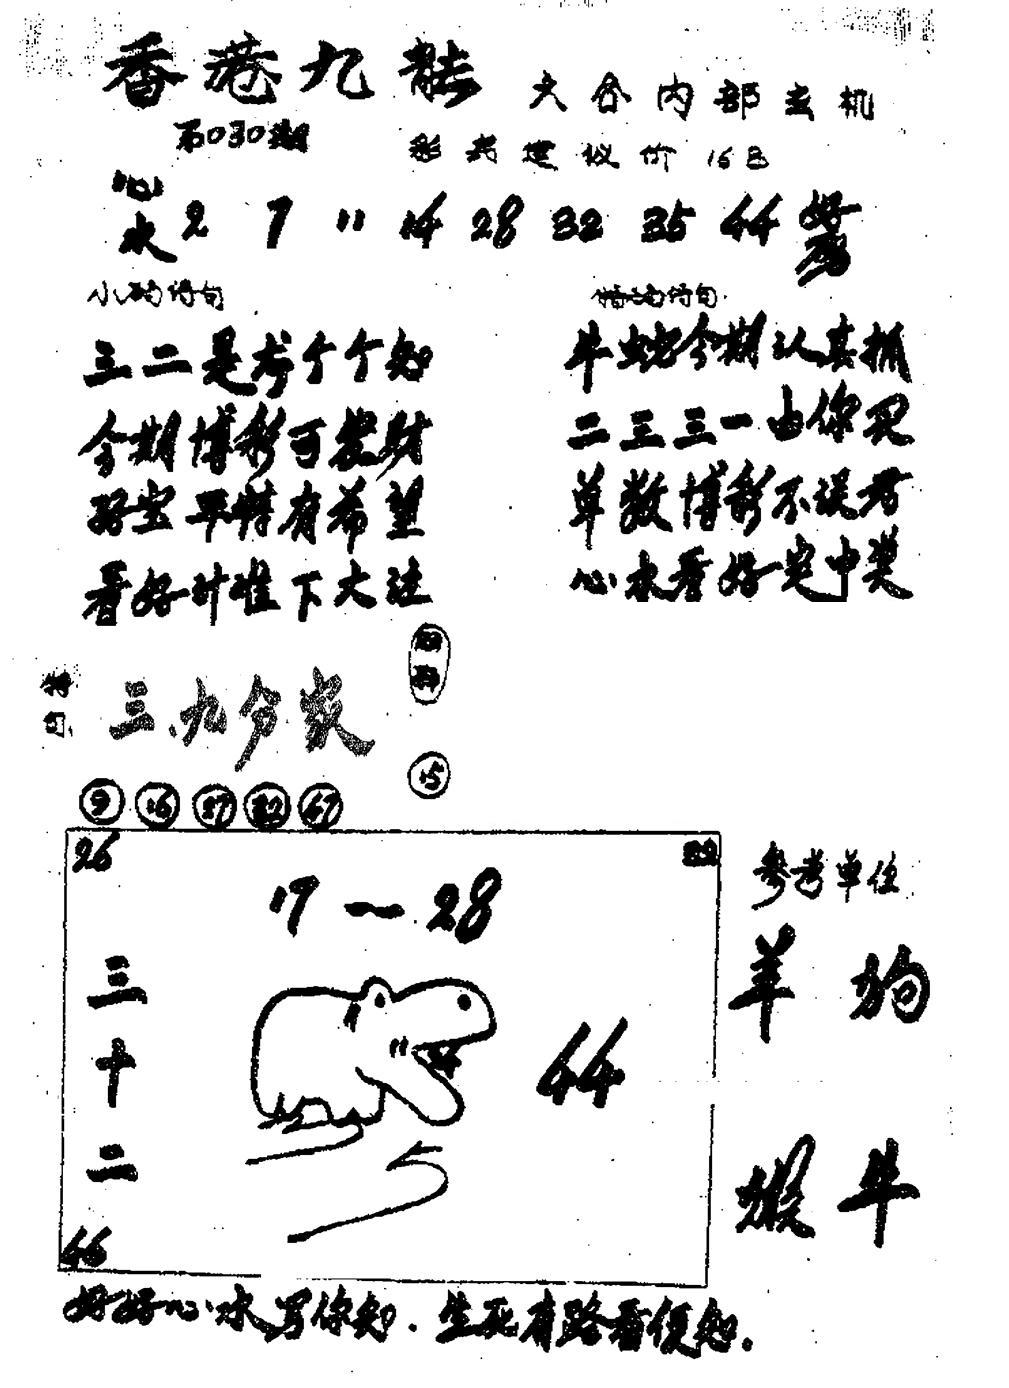 香港九龍
六合内部玄机
第030期
彩票建议价 16 
心水 2 7 11 14 28 32 35 44 好
小 诗句
诗句
三二是考个个知
牛蛇今期认真抓
今期博彩可发财
二三三一由你
宝平特有希望
单数博彩不误君
看好 准下大注
心水看好定中奖
特句
三、九分家
15
9 16 27 32 47
26
17—28
参考单位
羊 狗
三十二
44
猴 牛
46
好好心水写你知．生死有路看便知．